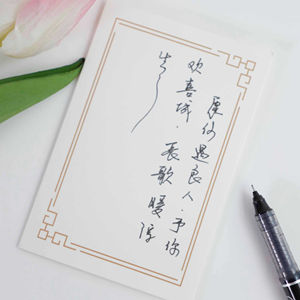 愿你遇良人·予你
欢喜城·长歌暖浮
生